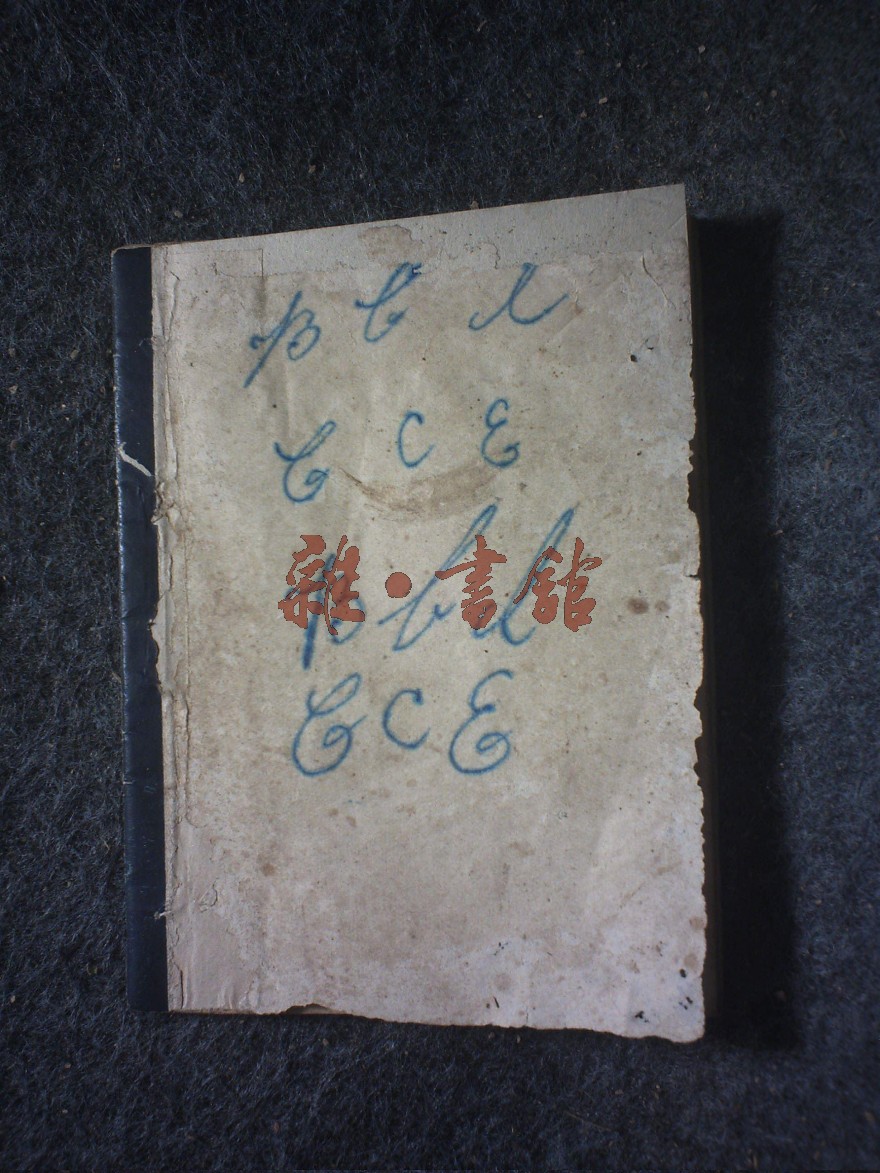 B C l
C C E
雜·書館
B C l
C C E